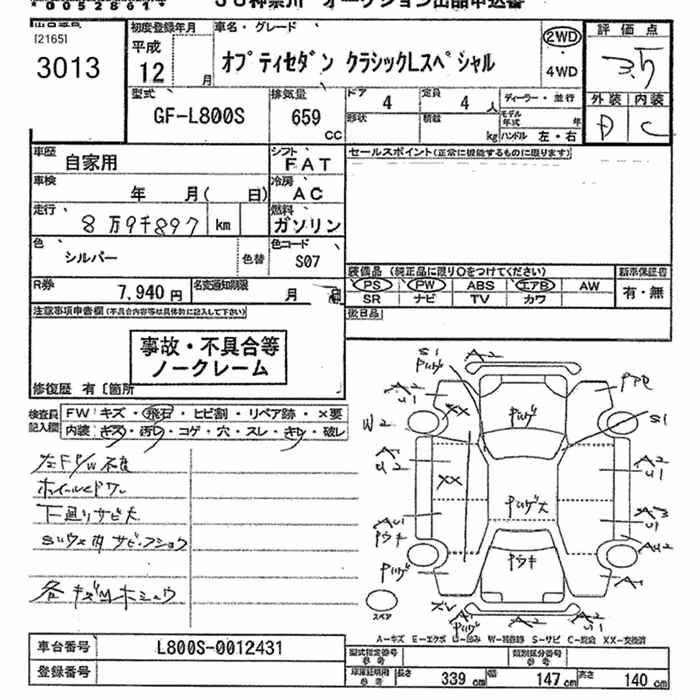 JU神奈川 オークション出品申込書
[2165]
3013
初度登録年月
平成
12 月
車名・グレード
オプティセダン クラシックLスペシャル
2WD
・
4WD
評価点
3.5
外装 内装
D C
型式
GF-L800S
排気量
659
CC
ドア
4
定員
4 人
形状
積載
kg
ディーラー・並行
モデル年式 年
ハンドル 左・右
車歴
自家用
シフト
FAT
セールスポイント(正常に機能するものに限ります)
車検
年 月( 日)
冷房
AC
走行
8万9千897 km
燃料
ガソリン
色
シルバー
色替
色コード
S07
装備品(純正品に限り○をつけてください)
新車保証書
PS PW ABS エアB AW
SR ナビ TV カワ
有・無
R券
7,940円
名変通知期限
月 日
後日品
注意事項申告欄(不具合内容等は具体的に記入して下さい)
事故・不具合等
ノークレーム
修復歴 有〔箇所
検査員
記入欄
FW キズ・飛石・ヒビ割・リペア跡・×要
内装 キズ・汚レ・コゲ・穴・スレ・キレ・破レ
左FP/W不良
下廻りサビ大
各キズ
S1
A2
A2
U1
XX
W2
A2
U2
XX
A1
S1
A2
U1
A3
U1
AU2
A1
A2
A2
スペア
A-キズ E-エクボ U-凹み W-補修跡 S-サビ C-腐蝕 XX-交換済
車台番号
L800S-0012431
登録番号
型式指定番号
参考
類別区分番号
参考
車庫証明用
参考
長さ
339 cm
幅
147 cm
高さ
140 cm